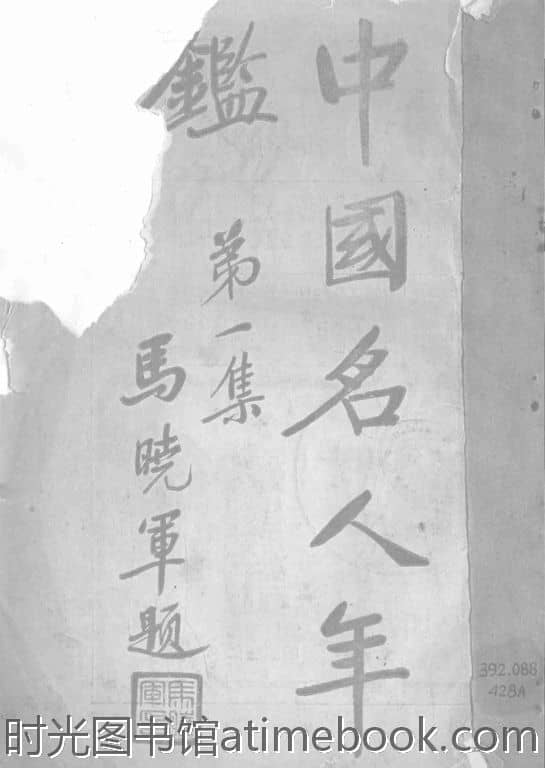 中國名人年
鑑
第一集
馬曉軍題
392.088
428A
时光图书馆atimebook.com